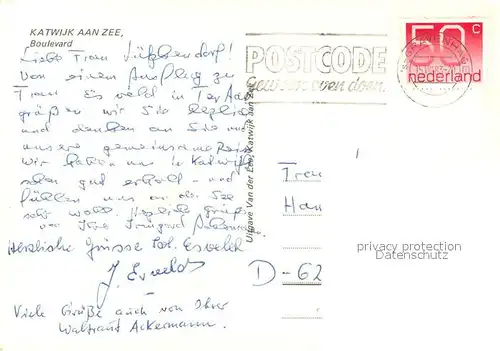 KATWIJK AAN ZEE,
Boulevard
Liebe Frau
Von einem Ausflug zu
Frau Esveld in Ter Aar
grüßen wir Sie herzlich
und denken an Sie und
unsere gemeinsame Reise
Wir haben uns in Katwijk
schon gut erholt - und
fühlen uns an der See
sehr wohl. Herzliche Grüße
von Ihrer Irmgard
Herzliche Grüsse
J. Esveld
Viele Grüße auch von Ihrer
Waltraut Ackermann.
Uitgave Van der Eest, Katwijk aan Zee
POSTCODE
Gewoon even doen.
50 c
nederland
D-62
privacy protection
Datenschutz